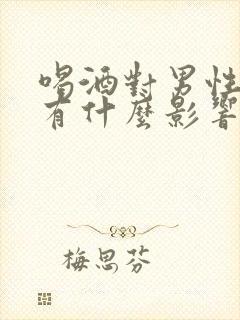 喝酒對男性
有什麼影響
梅思芬